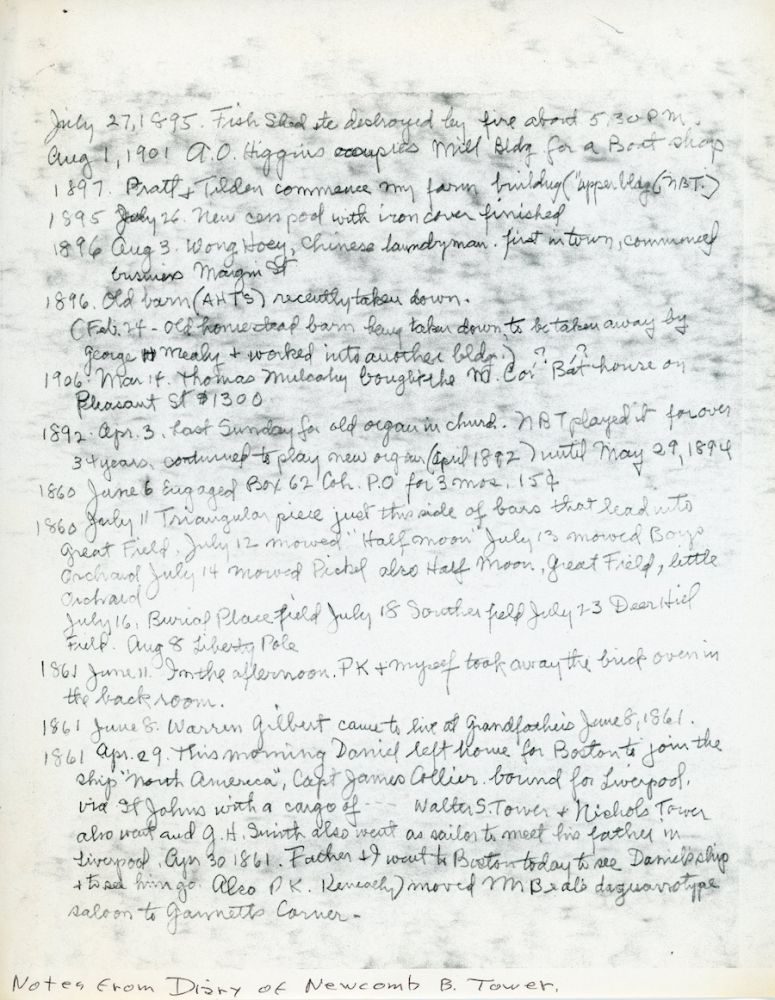 July 27, 1895. Fish Shed etc destroyed by fire about 5.30 P.M.
Aug 1, 1901 A.O. Higgins occupies Mill Bldg for a Boat shop
1897. Pratt & Tilden commence my farm building ("upper bldg (NBT.)
1895 July 26. New cess pool with iron cover finished
1896 Aug 3. Wong Hoey, Chinese laundryman. first in town, commenced
business Margin St
1896. Old barn (AHT's) recently taken down.
(Feb. 24 - Old homestead barn being taken down, to be taken away by
George H Mealy + worked into another bldg.)
1906. Mar 14. Thomas Mulcahy bought the M. Cor ? Bat ? house on
Pleasant St $1300
1892. Apr. 3. Last Sunday for old organ in church. NBT played it for over
34 years. continued to play new organ (April 1892) until May 29, 1894
1860 June 6 Engaged Box 62 Coh. P.O for 3 mos. 15¢
1860 July 11 Triangular piece just this side of bars that lead into
Great Field. July 12 mowed "Half moon" July 13 mowed Boys
Orchard July 14 mowed Pickel also Half Moon, Great Field, little
Orchard
July 16, Burial Place field July 18 Souther field July 23 Deer Hill
Field. Aug 8 Liberty Pole
1861 June 11. In the afternoon. PK + myself took away the brick oven in
the back room.
1861 June 8. Warren Gilbert came to live at Grandfather's June 8, 1861.
1861 Apr. 29. This morning Daniel left home for Boston to join the
ship "North America", Capt James Collier. bound for Liverpool,
via St Johns with a cargo of --- Walter S. Tower + Nichols Tower
also went and G.H. Smith also went as sailor to meet his father in
Liverpool. Apr 30 1861. Father + I went to Boston today to see Daniel's ship
+ to see him go. Also P.K. (Keneachy) moved Wm Beal's daguarrotype
saloon to Gannetts Corner -
Notes From Diary of Newcomb B. Tower.